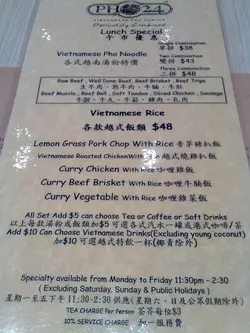 PHO24
Delicately Combined
Lunch Special
午市優惠
Vietnamese Pho Noodle
各式越南湯粉特價
單拼 $38
Two Combination
雙拼 $43
Three Combination
三拼 $48
Raw Beef, Well Done Beef, Beef Brisket, Beef Tripe
生牛肉、熟牛肉、牛腩、牛肚
Beef Muscle, Beef Ball, Soft Tendon, Sliced Chicken, Sausage
Vietnamese Rice
各款越式飯類 $48
Lemon Grass Pork Chop With Rice 香茅豬扒飯
Vietnamese Roasted Chicken With Rice 越式燒雞扒飯
Curry Chicken With Rice 咖喱雞飯
Curry Beef Brisket With Rice 咖喱牛腩飯
Curry Vegetable With Rice 咖喱雜菜飯
All Set Add $5 can choose Tea or Coffee or Soft Drinks
以上每款湯粉或飯類加$5可選各式汽水一罐或港式咖啡/茶
Add $10 Can Choose Vietnamese Drinks(Excluding young coconut)
加$10可選越式特飲一杯(椰青除外)
Specialty available from Monday to Friday 11:30pm - 2:30
( Excluding Saturday, Sunday & Public Holidays)
星期一至五下午11:30-2:30供應(星期六、日及公眾假期除外)
TEA CHARGE Per Person 茶芥每位$3
10% SERVICE CHARGE 加一服務費